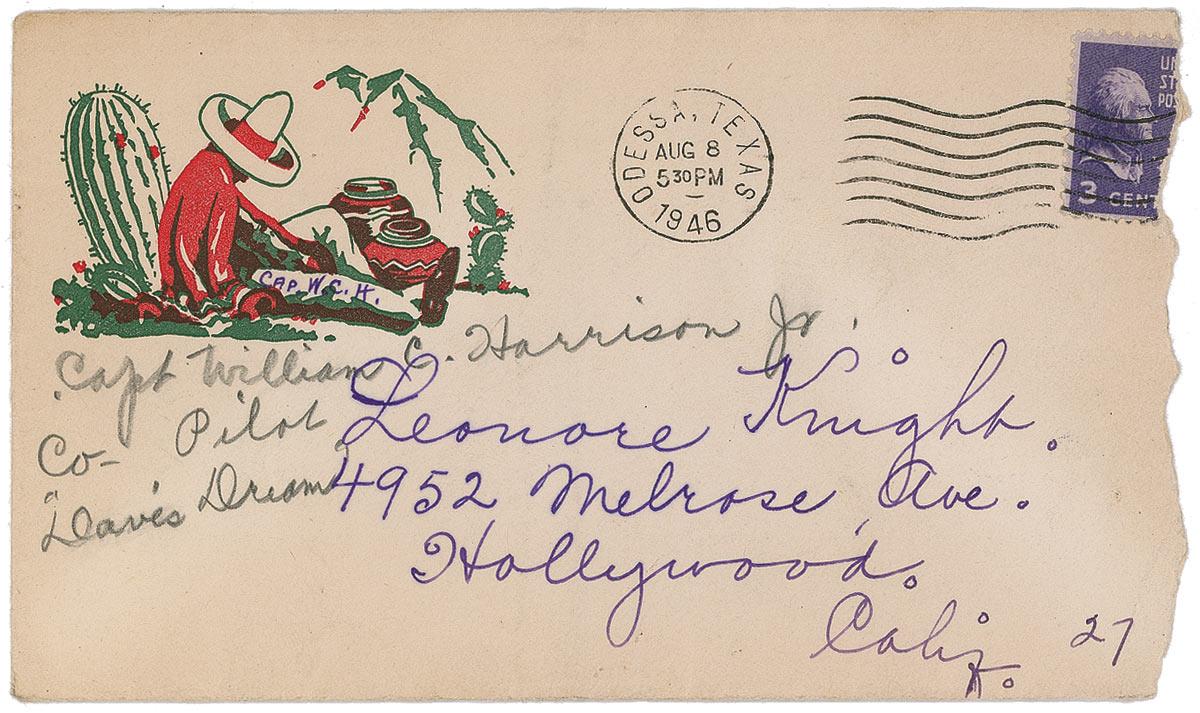 ODESSA, TEXAS
AUG 8
5 30 PM
1946
3 CEN
CAP. W.C.H.
Capt William C. Harrison Jr.
Co- Pilot
"Dave's Dream"
Leonore Knight.
4952 Melrose Ave.
Hollywood.
Calif. 27